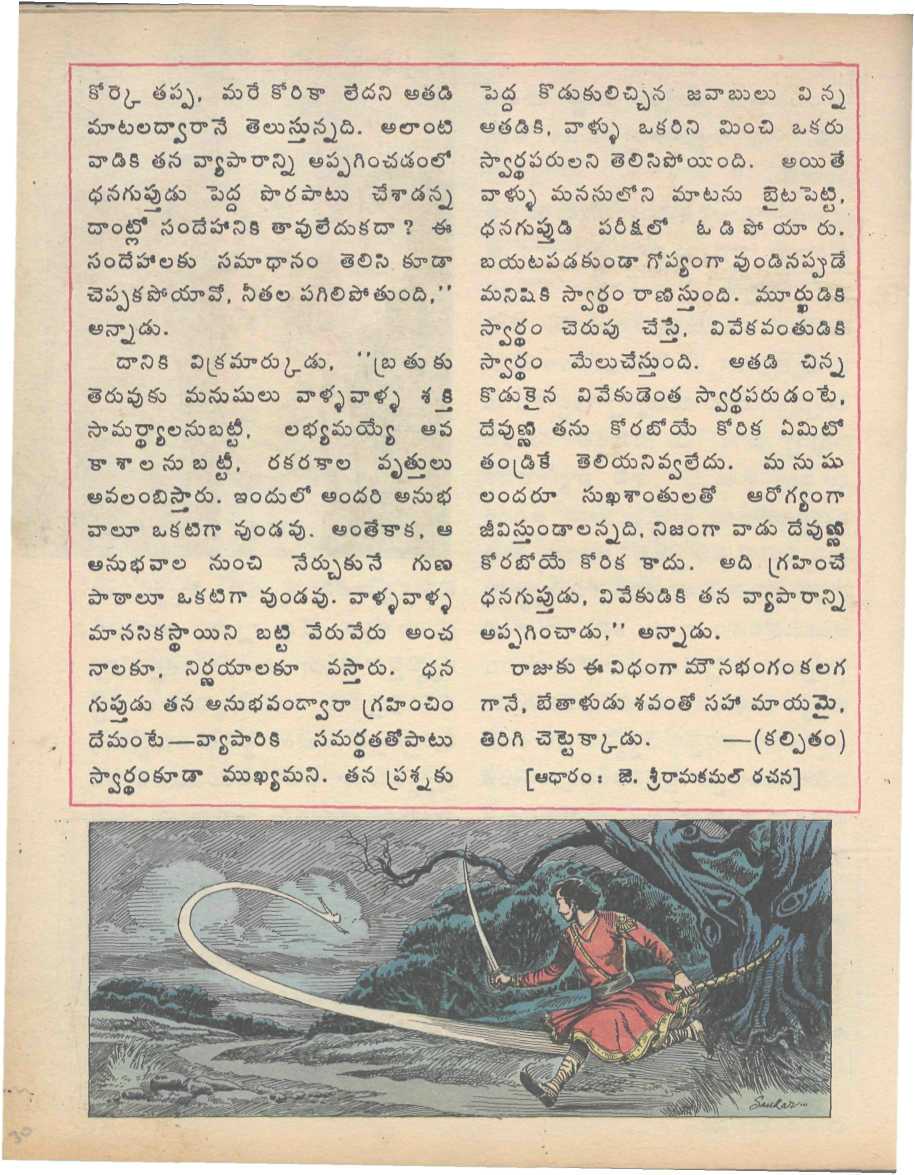 కోర్కె తప్ప, మరే కోరికా లేదని అతడి
మాటలద్వారానే తెలుస్తున్నది. అలాంటి
వాడికి తన వ్యాపారాన్ని అప్పగించడంలో
ధనగుప్తుడు పెద్ద పొరపాటు చేశాడన్న
దాంట్లో సందేహానికి తావులేదుకదా? ఈ
సందేహాలకు సమాధానం తెలిసి కూడా
చెప్పకపోయావో, నీతల పగిలిపోతుంది,''
అన్నాడు.
దానికి విక్రమార్కుడు, ''బ్రతుకు
తెరువుకు మనుషులు వాళ్ళవాళ్ళ శక్తి
సామర్థ్యాలనుబట్టీ, లభ్యమయ్యే అవ
కాశాలనుబట్టీ, రకరకాల వృత్తులు
అవలంబిస్తారు. ఇందులో అందరి అనుభ
వాలూ ఒకటిగా వుండవు. అంతేకాక, ఆ
అనుభవాల నుంచి నేర్చుకునే గుణ
పాఠాలూ ఒకటిగా వుండవు. వాళ్ళవాళ్ళ
మానసికస్థాయిని బట్టి వేరువేరు అంచ
నాలకూ, నిర్ణయాలకూ వస్తారు. ధన
గుప్తుడు తన అనుభవంద్వారా గ్రహించిం
దేమంటే—వ్యాపారికి సమర్థతతోపాటు
స్వార్థంకూడా ముఖ్యమని. తన ప్రశ్నకు
పెద్ద కొడుకులిచ్చిన జవాబులు విన్న
అతడికి, వాళ్ళు ఒకరిని మించి ఒకరు
స్వార్థపరులని తెలిసిపోయింది. అయితే
వాళ్ళు మనసులోని మాటను బైటపెట్టి,
ధనగుప్తుడి పరీక్షలో ఓడిపోయారు.
బయటపడకుండా గోప్యంగా వుండినప్పుడే
మనిషికి స్వార్థం రాణిస్తుంది. మూర్ఖుడికి
స్వార్థం చెరుపు చేస్తే, వివేకవంతుడికి
స్వార్థం మేలుచేస్తుంది. ఆతడి చిన్న
కొడుకైన వివేకుడెంత స్వార్థపరుడంటే,
దేవుణ్ణి తను కోరబోయే కోరిక ఏమిటో
తండ్రికే తెలియనివ్వలేదు. మనుషు
లందరూ సుఖశాంతులతో ఆరోగ్యంగా
జీవిస్తుండాలన్నది, నిజంగా వాడు దేవుణ్ణి
కోరబోయే కోరిక కాదు. అది గ్రహించే
ధనగుప్తుడు, వివేకుడికి తన వ్యాపారాన్ని
అప్పగించాడు,'' అన్నాడు.
రాజుకు ఈ విధంగా మౌనభంగం కలగ
గానే, బేతాళుడు శవంతో సహా మాయమై,
తిరిగి చెట్టెక్కాడు. —(కల్పితం)
[ఆధారం: జె. శ్రీరామకమల్ రచన]
Sankar...
30